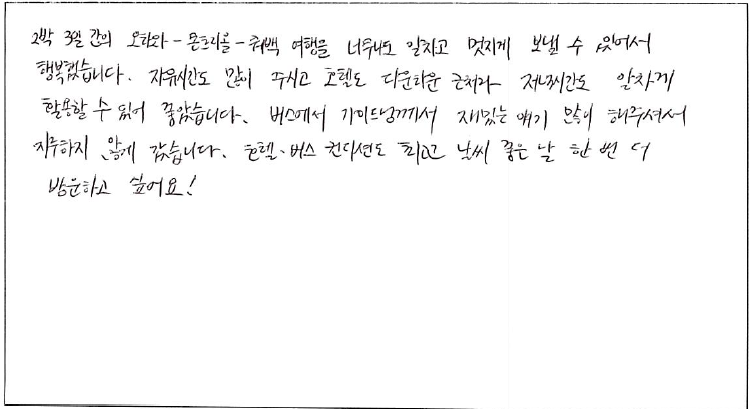 2박 3일 간의 오타와-몬트리올-퀘백 여행을 너무나도 알차고 멋지게 보낼 수 있어서
행복했습니다. 자유시간도 많이 주시고 호텔도 다운타운 근처라 저녁시간도 알차게
활용할 수 있어 좋았습니다. 버스에서 가이드님께서 재밌는 얘기 많이 해주셔서
지루하지 않게 갔습니다. 호텔·버스 컨디션도 최고 날씨 좋은 날 한 번 더
방문하고 싶어요!